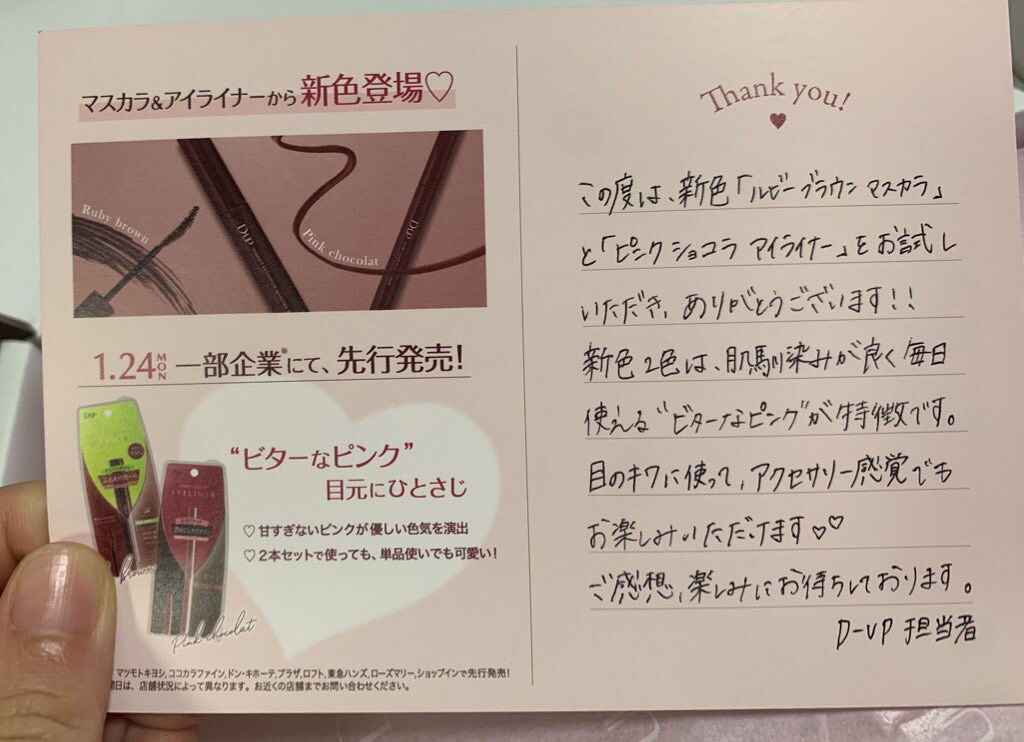 マスカラ&アイライナーから新色登場♡
Ruby brown
D-UP
Pink chocolat
D-UP
1.24 MON 一部企業※にて、先行発売!
D-UP
EYELINER
"ビターなピンク"
目元にひとさじ
♡ 甘すぎないピンクが優しい色気を演出
♡ 2本セットで使っても、単品使いでも可愛い!
brown
Pink chocolat
マツモトキヨシ,ココカラファイン,ドン・キホーテ,プラザ,ロフト,東急ハンズ,ローズマリー,ショップインで先行発売!
日は、店舗状況によって異なります。お近くの店舗までお問い合わせください。
Thank you!
この度は、新色「ルビーブラウン マスカラ」
と「ピンク ショコラ アイライナー」をお試し
いただき、ありがとうございます!!
新色2色は、肌馴染みが良く毎日
使える"ビターなピンク"が特徴です。
目のキワに使って、アクセサリー感覚でも
お楽しみいただけます♡♡
ご感想、楽しみにお待ちしております。
D-UP 担当者